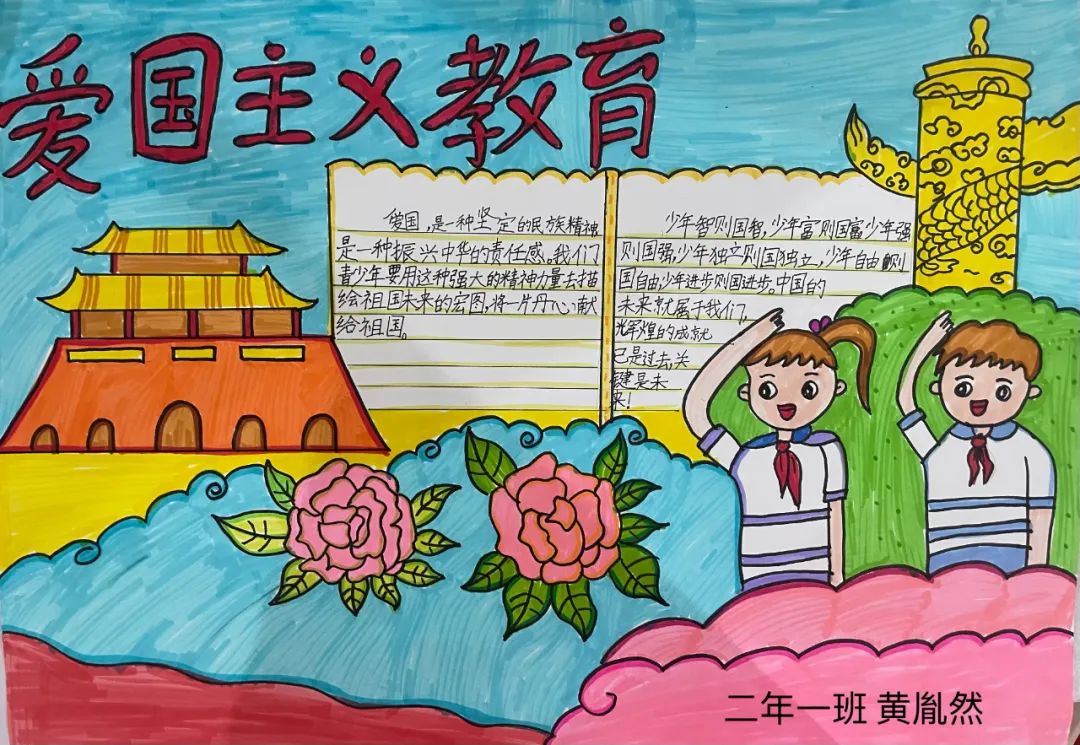 爱国主义教育
爱国,是一种坚定的民族精神
是一种振兴中华的责任感。我们
青少年要用这种强大的精神力量去描
绘祖国未来的宏图,将一片丹心献
给祖国。
少年智则国智,少年富则国富少年强
则国强,少年独立则国独立,少年自由则
国自由,少年进步则国进步。中国的
未来就属于我们,
光辉煌的成就
已是过去,关
键是未
来!
二年一班 黄胤然